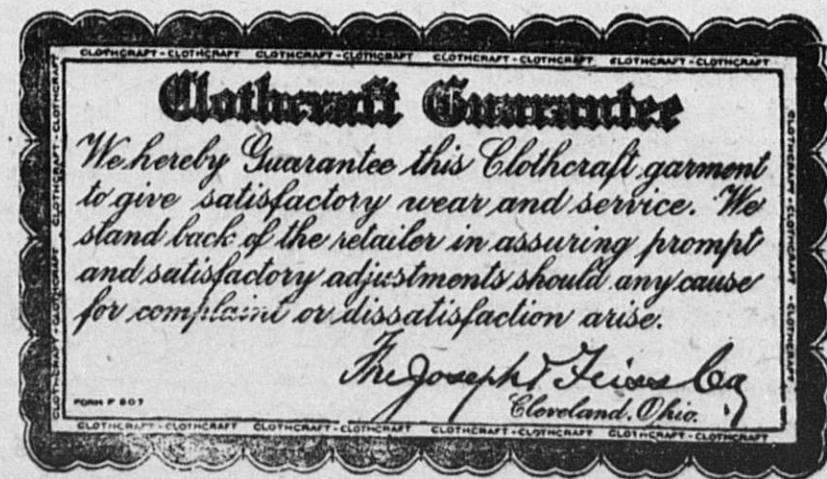 CLOTHCRAFT - CLOTHCRAFT CLOTHCRAFT - CLOTHCRAFT CLOTHCRAFT - CLOTHCRAFT CLOTHCRAFT - CLOTHCRAFT
Clothcraft Guarantee
We hereby Guarantee this Clothcraft garment
to give satisfactory wear and service. We
stand back of the retailer in assuring prompt
and satisfactory adjustments should any cause
for complaint or dissatisfaction arise.
The Joseph & Feiss Co
FORM F 807
Cleveland, Ohio.
CLOTHCRAFT - CLOTHCRAFT CLOTHCRAFT - CLOTHCRAFT CLOTHCRAFT - CLOTHCRAFT CLOTHCRAFT - CLOTHCRAFT
CLOTHCRAFT - CLOTHCRAFT - CLOTHCRAFT - CLOTHCRAFT
CLOTHCRAFT - CLOTHCRAFT - CLOTHCRAFT - CLOTHCRAFT